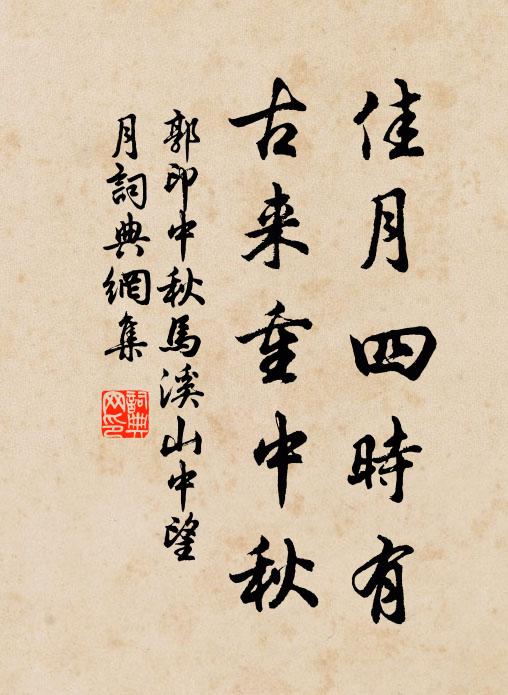 佳月四時有
古来重中秋
郭印中秋馬溪山中望
月詞典網集
詞典網印